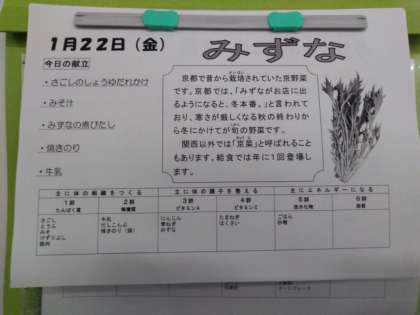 1月22日（金）
みずな
今日の献立
・さごしのしょうゆだれかけ
・みそ汁
・みずなの煮びたし
・焼きのり
・牛乳
京都で昔から栽培されていた京野菜
です。京都では、「みずながお店に出
るようになると、冬本番。」と言われて
おり、寒さが厳しくなる秋の終わりか
ら冬にかけてが旬の野菜です。
関西以外では「京菜」と呼ばれること
もあります。給食では年に1回登場し
ます。
主に体の組織をつくる 主に体の調子を整える 主にエネルギーになる
1群 2群 3群 4群 5群 6群
たんぱく質 無機質 ビタミンA ビタミンC 炭水化物 脂質
さごし 牛乳 にんじん たまねぎ ごはん
とうふ だしこんぶ 青ねぎ はくさい 砂糖
みそ 焼きのり（袋） みずな
けずりぶし